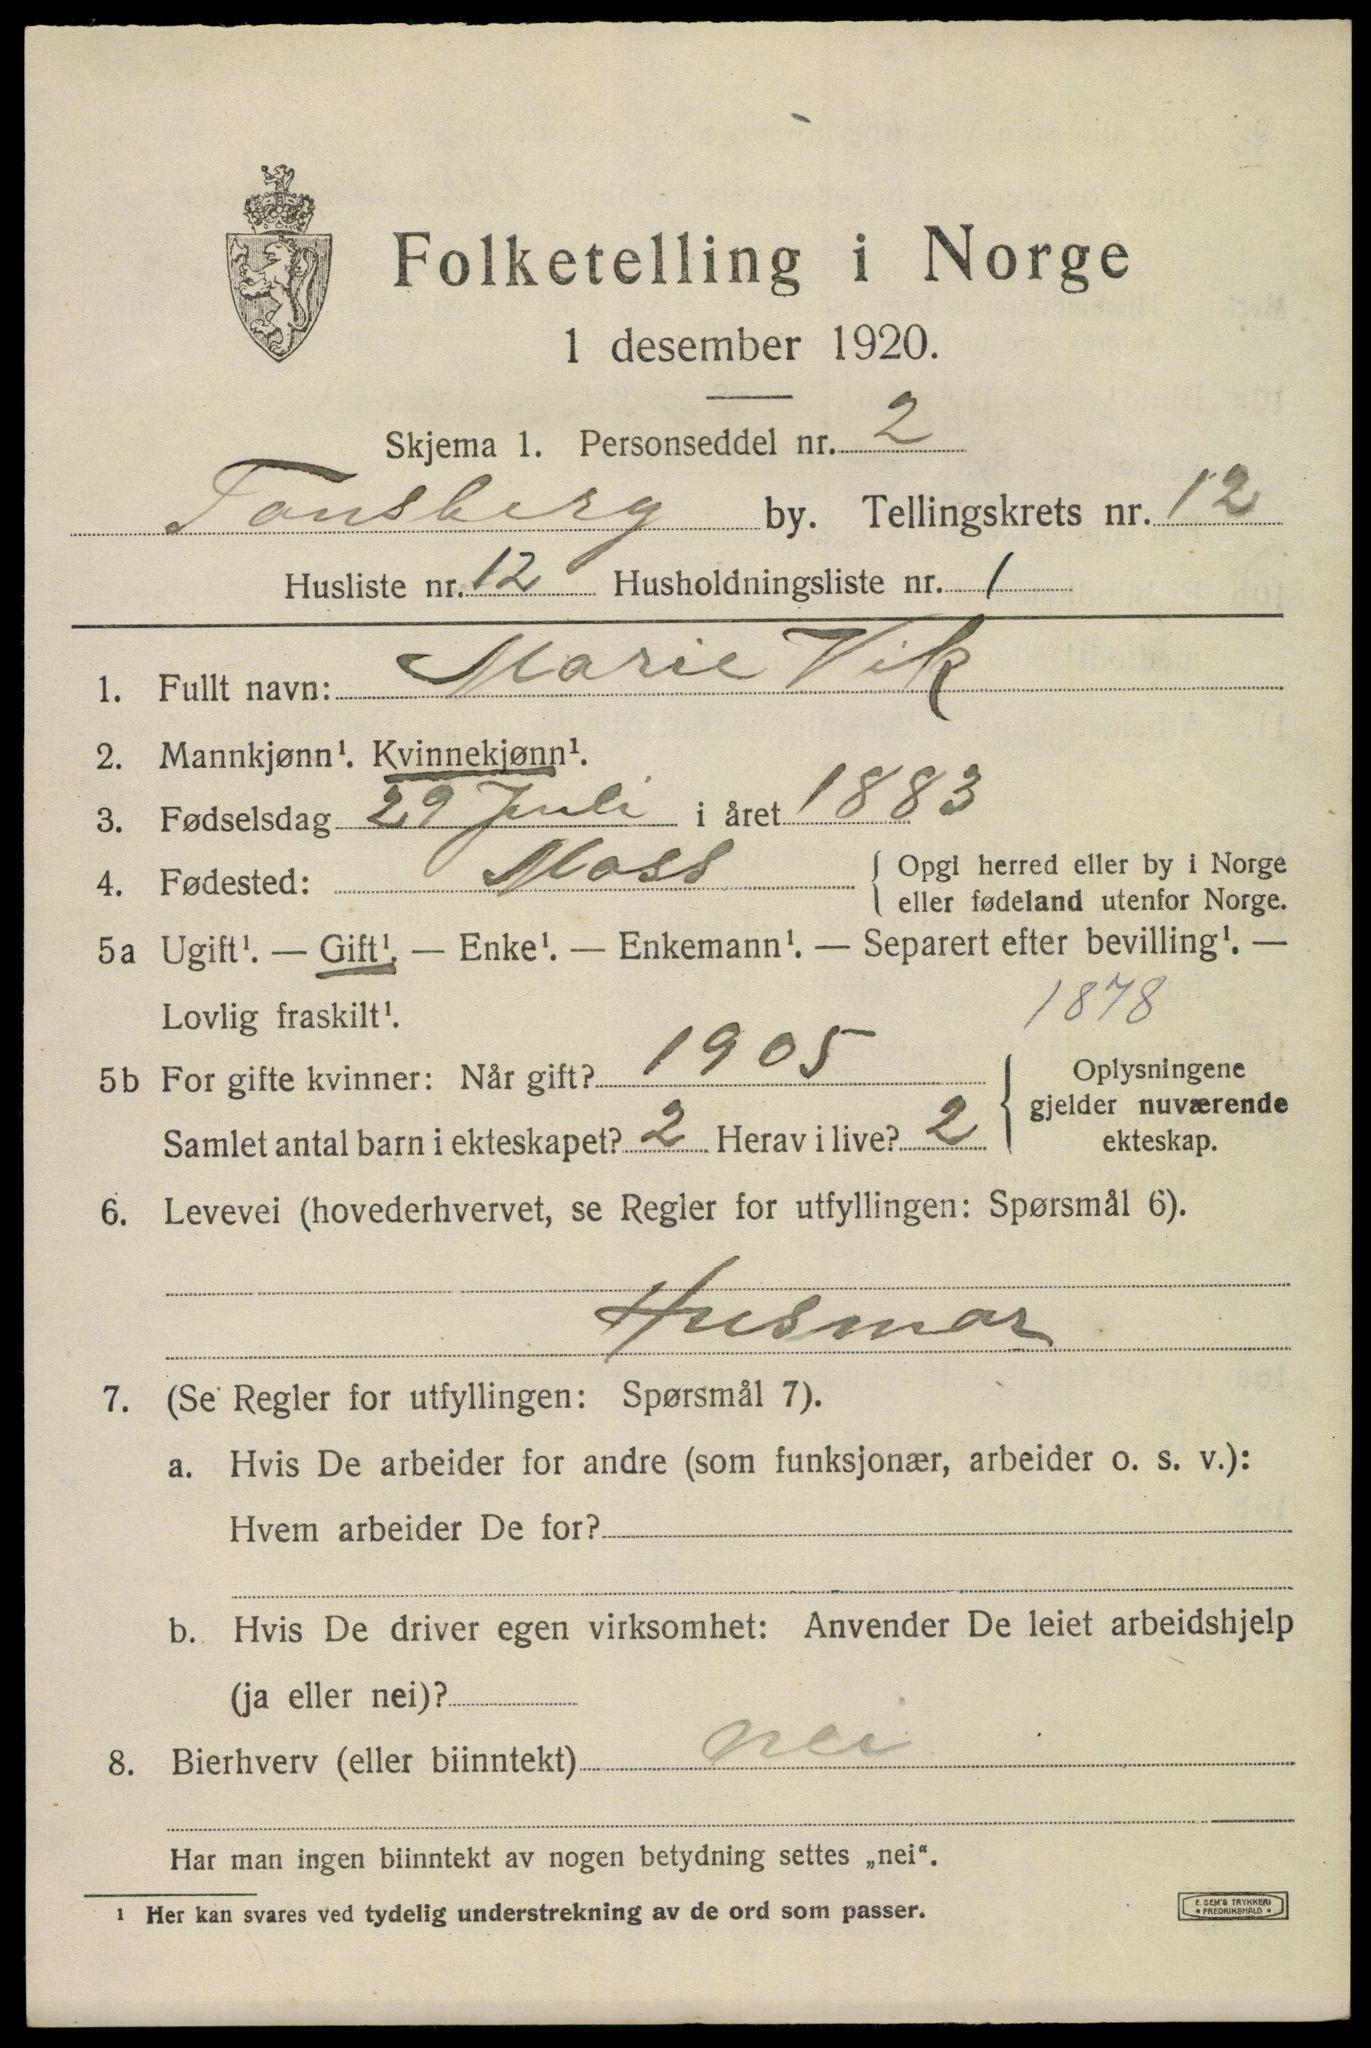 Folketelling i Norge
1 desember 1920.
Skjema 1. Personseddel nr. 2
Tønsberg by. Tellingskrets nr. 12
Husliste nr. 12 Husholdningsliste nr. 1
1. Fullt navn: Marie Vik
2. Mannkjønn¹. Kvinnekjønn¹.
3. Fødselsdag 29 Juli i året 1883
4. Fødested: Moss { Opgi herred eller by i Norge
eller fødeland utenfor Norge.
5a Ugift¹. — Gift¹. — Enke¹. — Enkemann¹. — Separert efter bevilling¹. —
Lovlig fraskilt¹. 1878
5b For gifte kvinner: Når gift? 1905
Samlet antal barn i ekteskapet? 2 Herav i live? 2
{ Oplysningene
gjelder nuværende
ekteskap.
6. Levevei (hovederhvervet, se Regler for utfyllingen: Spørsmål 6).
Husmor
7. (Se Regler for utfyllingen: Spørsmål 7).
a. Hvis De arbeider for andre (som funksjonær, arbeider o. s. v.):
Hvem arbeider De for?
b. Hvis De driver egen virksomhet: Anvender De leiet arbeidshjelp
(ja eller nei)?
8. Bierhverv (eller biinntekt) nei
Har man ingen biinntekt av nogen betydning settes „nei“.
¹ Her kan svares ved tydelig understrekning av de ord som passer.
E. SEM'S TRYKKERI
FREDRIKSHALD